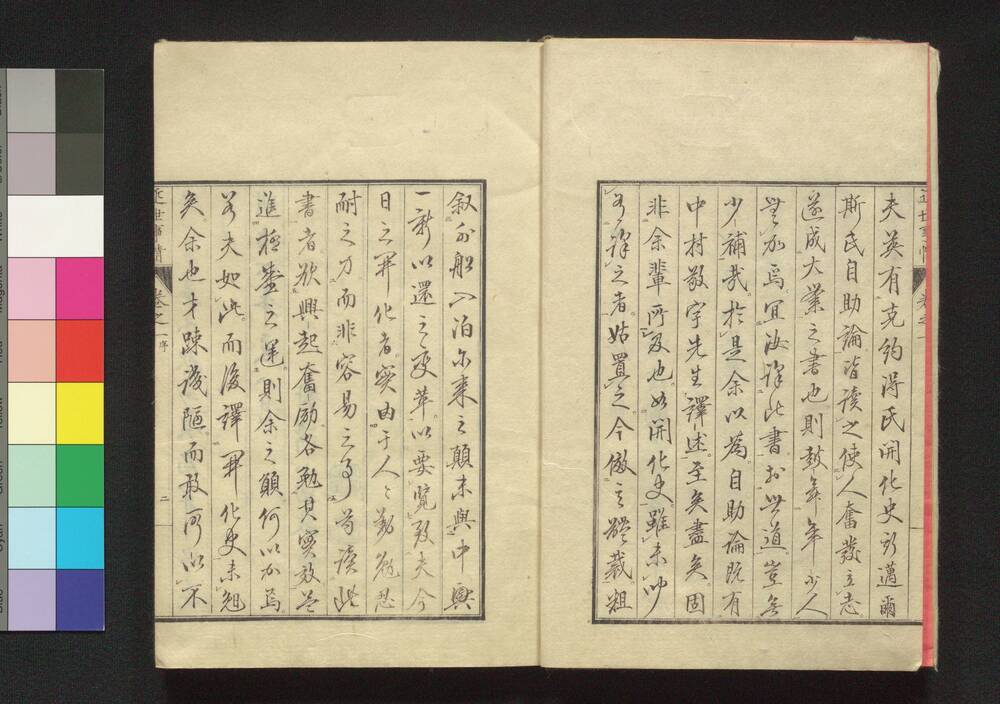 夫英有克約得氏開化史所邁爾
斯氏自助論皆讀之使人奮發立志
遂成大業之書也則鼓舞年少人
無加焉宜汝譯此書於世道豈無
少補哉於是余以為自助論既有
中村敬宇先生譯述至矣盡矣固
非余輩所及也如開化史雖未聞
有譯之者姑置之今倣之體裁粗
近世事情 巻之一
叙外船入泊尓来之顛末與中興
一新以還之変革以要覧致夫今
日之開化者實由于人々勤勉忍
耐之力而非容易之事苟讀此
書者欣興起奮励各勉其實效益
進極盛之運則余之願何以加焉
若夫如此而後譯開化史未魁
矣余也才疎識陋而敢所以不
近世事情 巻之一 序
二